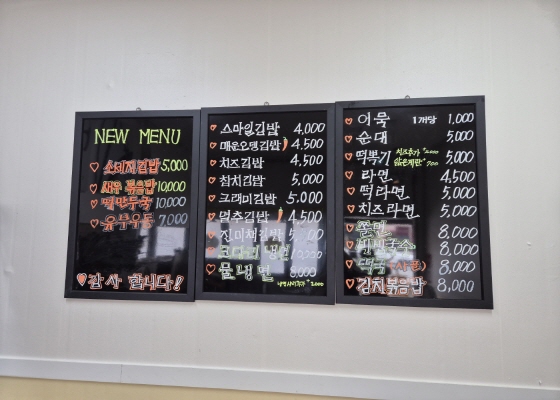 NEW MENU
소떡지김밥 5,000
새우 볶음밥 10,000
떡만두국 10,000
유부우동 7,000
감사 합니다!
스마일김밥 4,000
매운오뎅김밥 4,500
치즈김밥 4,500
참치김밥 5,000
크래미김밥 5,000
땡추김밥 4,500
진미채김밥 5,000
물냉면 8,000
냉면사리추가 2,000
어묵 1개당 1,000
순대 5,000
떡볶기 치즈추가 2,000 5,000
삶은계란 700
라면 4,500
떡라면 5,000
치즈라면 5,000
쫄면 8,000
비빔국수 8,000
떡국 8,000
김치볶음밥 8,000